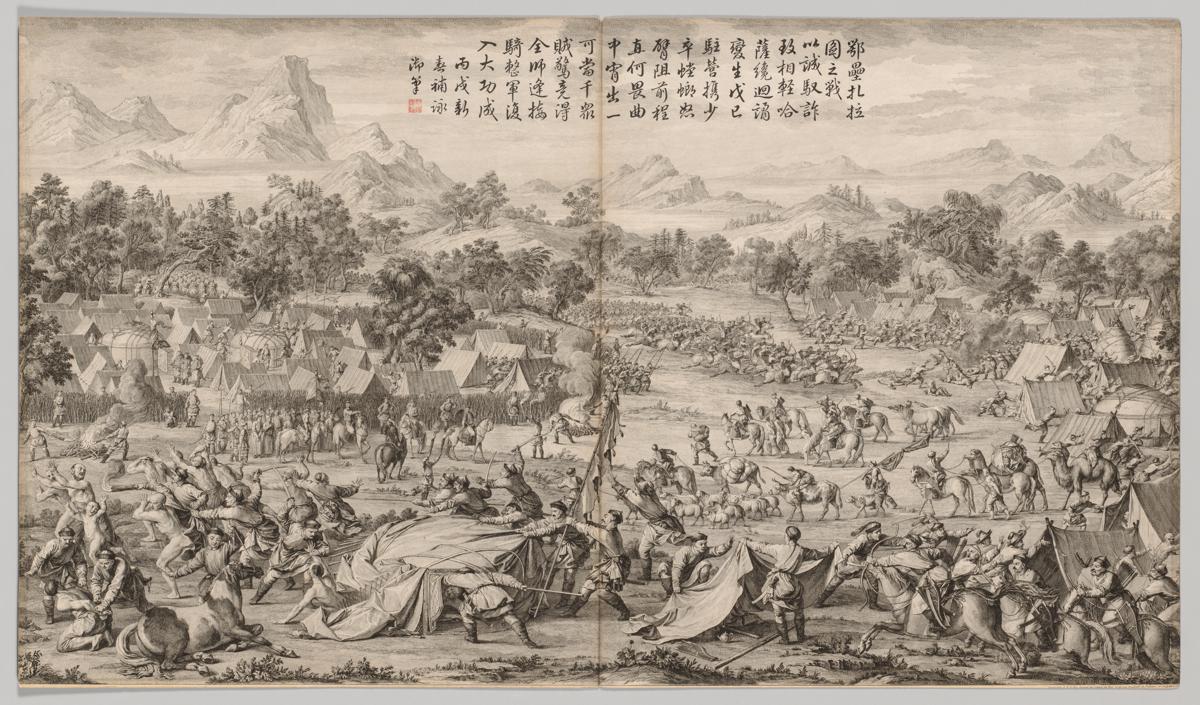 鄂壘扎拉
圖之戰
以誠馭詐
致相輕哈
薩繞迴誦
變生戊已
駐營携少
卒螳螂怒
臂阻前程
直何畏曲
中宵出一
可當千眾
賊驚竟得
全師逢接
騎整軍復
入大功成
丙戌新
春補詠
御筆